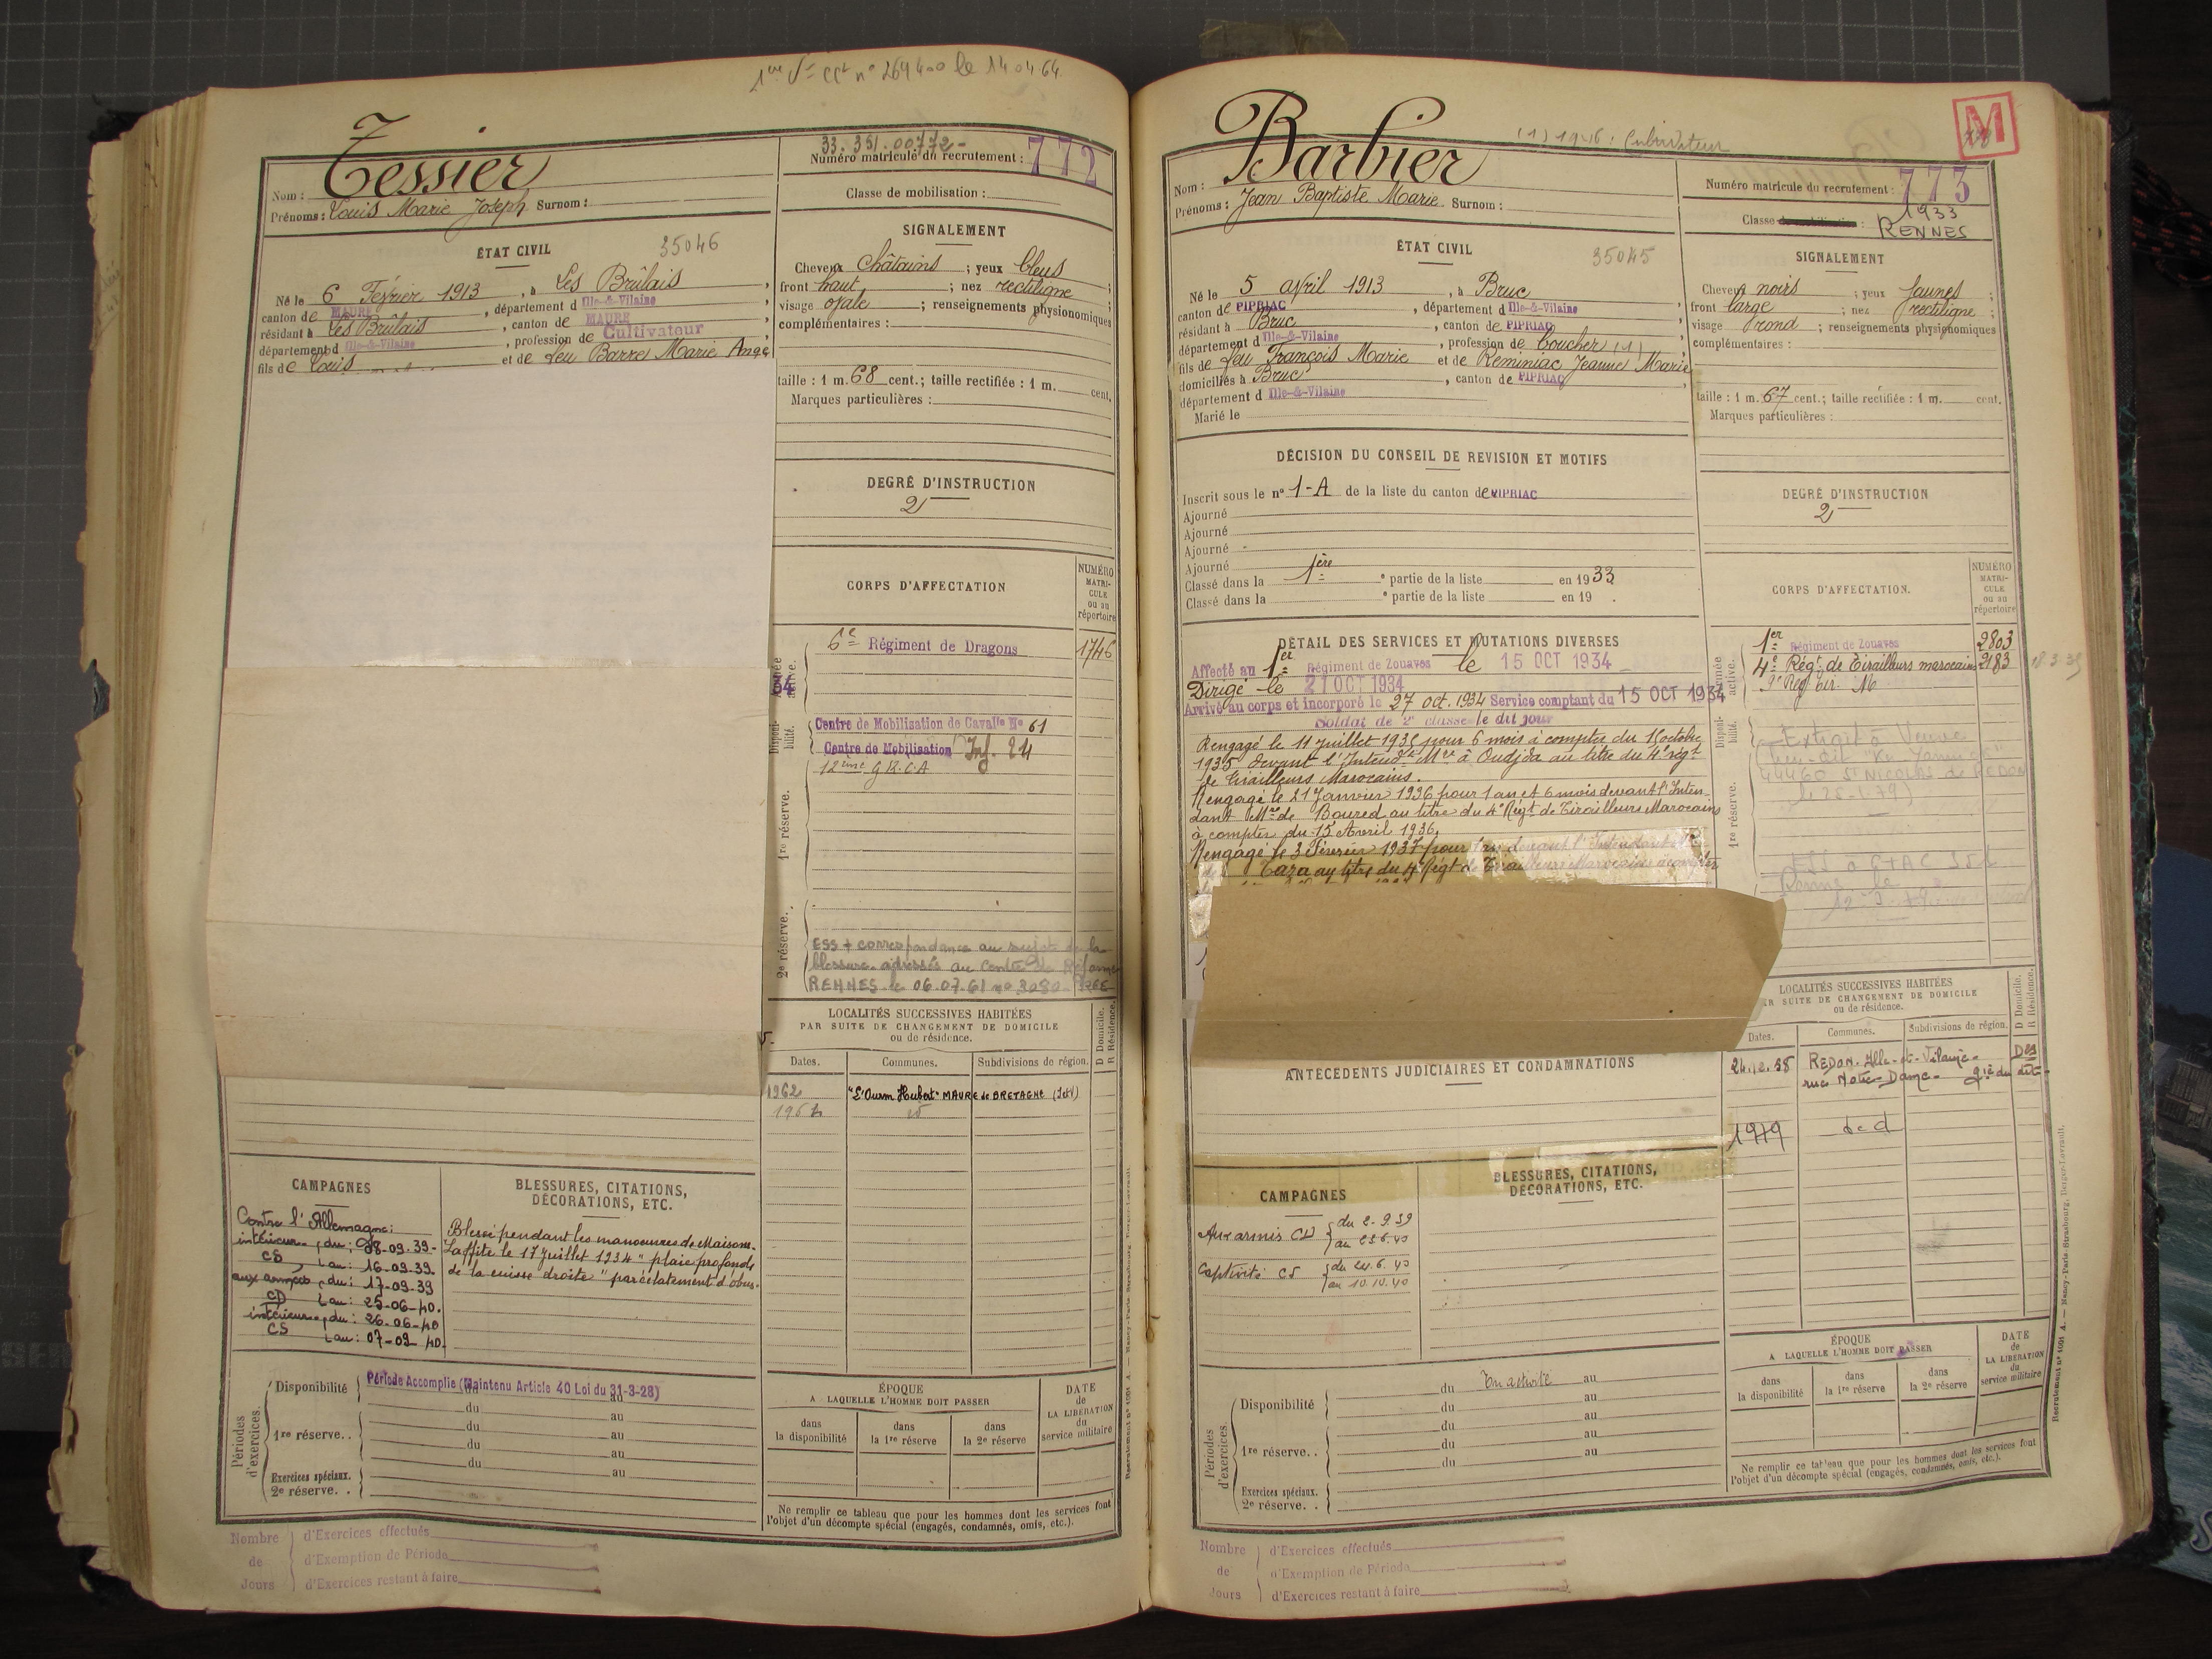 1ère
le 14.04.64
Tessier
Nom :
Prénoms : Louis Marie Joseph Surnom :
33.351.00772-
Numéro matricule du recrutement : 772
Classe de mobilisation :
ÉTAT CIVIL
35046
Né le 6 Février 1913, à Les Brûlais,
canton de MAURE, département d Ille-&-Vilaine
résidant à Les Brûlais, canton de MAURE
département d Ille-&-Vilaine, profession de Cultivateur
fils de Louis et de feu Barre Marie Ange
SIGNALEMENT
Cheveux Châtains ; yeux bleus ;
front haut ; nez rectiligne ;
visage ovale ; renseignements physionomiques
complémentaires :
taille : 1 m. 68 cent.; taille rectifiée : 1 m. cent.
Marques particulières :
DEGRÉ D'INSTRUCTION
2
CORPS D'AFFECTATION
NUMÉRO
MATRI-
CULE
ou au
répertoire
6e Régiment de Dragons 1746
Centre de Mobilisation de Cavalie No 61
Centre de Mobilisation Inf. 24
12ème G.R.C.A
active.
Disponi-
bilité.
1re réserve.
2e réserve.
ESS + correspondance au sujet de la
blessure adressés au Centre de Réforme
RENNES le 06.07.61 no 3080
LOCALITÉS SUCCESSIVES HABITÉES
PAR SUITE DE CHANGEMENT DE DOMICILE
ou de résidence.
D Domicile.
R Résidence.
Dates. Communes. Subdivisions de région.
1962 MAURE de BRETAGNE (I et V)
CAMPAGNES
Contre l'Allemagne:
intérieur du: 08-09-39-
CS au: 16-09-39.
aux armées du: 17-09-39
CD au: 25-06-40.
intérieur du: 26-06-40
CS au: 07-09-40.
BLESSURES, CITATIONS,
DÉCORATIONS, ETC.
Blessé pendant les manoeuvres de Maisons-
Laffite le 17 juillet 1934 " plaie profonde
de la cuisse droite " par éclatement d'obus-
Périodes
d'exercices.
Disponibilité Période Accomplie (Maintenu Article 40 Loi du 31-3-28)
du au
du au
1re réserve.. du au
du au
du au
Exercices spéciaux.
2e réserve..
ÉPOQUE
A LAQUELLE L'HOMME DOIT PASSER
dans
la disponibilité
dans
la 1re réserve
dans
la 2e réserve
DATE
de
LA LIBÉRATION
du
service militaire
Ne remplir ce tableau que pour les hommes dont les services font
l'objet d'un décompte spécial (engagés, condamnés, omis, etc.).
Nombre
de
Jours
d'Exercices effectués
d'Exemption de Période
d'Exercices restant à faire
Barbier
(1) 1946 : Cultivateur
M
Nom :
Prénoms : Jean Baptiste Marie Surnom :
Numéro matricule du recrutement : 773
Classe de mobilisation : 1933
RENNES
ÉTAT CIVIL
35045
Né le 5 avril 1913, à Bruc
canton de PIPRIAC, département d Ille-&-Vilaine
résidant à Bruc, canton de PIPRIAC
département d Ille-&-Vilaine, profession de boucher (1)
fils de feu François Marie et de Reminiac Jeanne Marie
domiciliés à Bruc, canton de PIPRIAC
département d Ille-&-Vilaine
Marié le
SIGNALEMENT
Cheveux noirs ; yeux jaunes ;
front large ; nez rectiligne ;
visage rond ; renseignements physionomiques
complémentaires :
taille : 1 m. 67 cent.; taille rectifiée : 1 m. cent.
Marques particulières :
DÉCISION DU CONSEIL DE REVISION ET MOTIFS
Inscrit sous le no 1-A de la liste du canton de PIPRIAC
Ajourné
Ajourné
Ajourné
Ajourné
Classé dans la 1ère e partie de la liste en 1933
Classé dans la e partie de la liste en 19 .
DEGRÉ D'INSTRUCTION
2
DÉTAIL DES SERVICES ET MUTATIONS DIVERSES
Affecté au 1er Régiment de Zouaves le 15 OCT 1934
Dirigé le 21 OCT 1934
Arrivé au corps et incorporé le 27 oct. 1934 Service comptant du 15 OCT 1934
Soldat de 2e classe le dit jour
Rengagé le 11 juillet 1935 pour 6 mois à compter du 15 octobre
1935 devant l'Intendt Mre à Oudjda au titre du 4e régt
de Tirailleurs Marocains.
Rengagé le 21 Janvier 1936 pour 1 an et 6 mois devant l'Inten-
dant Mre de Boured au titre du 4e Régt de Tirailleurs Marocains
à compter du 15 Avril 1936.
Rengagé le 3 Février 1937 pour devant l'Intendant
de Taza au titre du 4e Régt de Tirailleurs Marocains à compter
CORPS D'AFFECTATION.
NUMÉRO
MATRI-
CULE
ou au
répertoire
1er Régiment de Zouaves 2803
4e Régt de Tirailleurs marocains 2183
active.
Disponi-
bilité.
1re réserve.
Extrait à Veuve
44460 St NICOLAS de REDON
LOCALITÉS SUCCESSIVES HABITÉES
PAR SUITE DE CHANGEMENT DE DOMICILE
ou de résidence.
D Domicile.
R Résidence.
Dates. Communes. Subdivisions de région.
REDON. Ille-et-Vilaine-
rue Notre-Dame-
ANTÉCÉDENTS JUDICIAIRES ET CONDAMNATIONS
CAMPAGNES
Aux armées CD du 2.9.39
au 23.6.40
Captivité CS du 24.6.40
au 10.10.40
BLESSURES, CITATIONS,
DÉCORATIONS, ETC.
Périodes
d'exercices.
Disponibilité du En activité au
du au
du au
1re réserve.. du au
du au
Exercices spéciaux.
2e réserve..
ÉPOQUE
A LAQUELLE L'HOMME DOIT PASSER
dans
la disponibilité
dans
la 1re réserve
dans
la 2e réserve
DATE
de
LA LIBÉRATION
du
service militaire
Ne remplir ce tableau que pour les hommes dont les services font
l'objet d'un décompte spécial (engagés, condamnés, omis, etc.).
Nombre
de
Jours
d'Exercices effectués
d'Exemption de Période
d'Exercices restant à faire